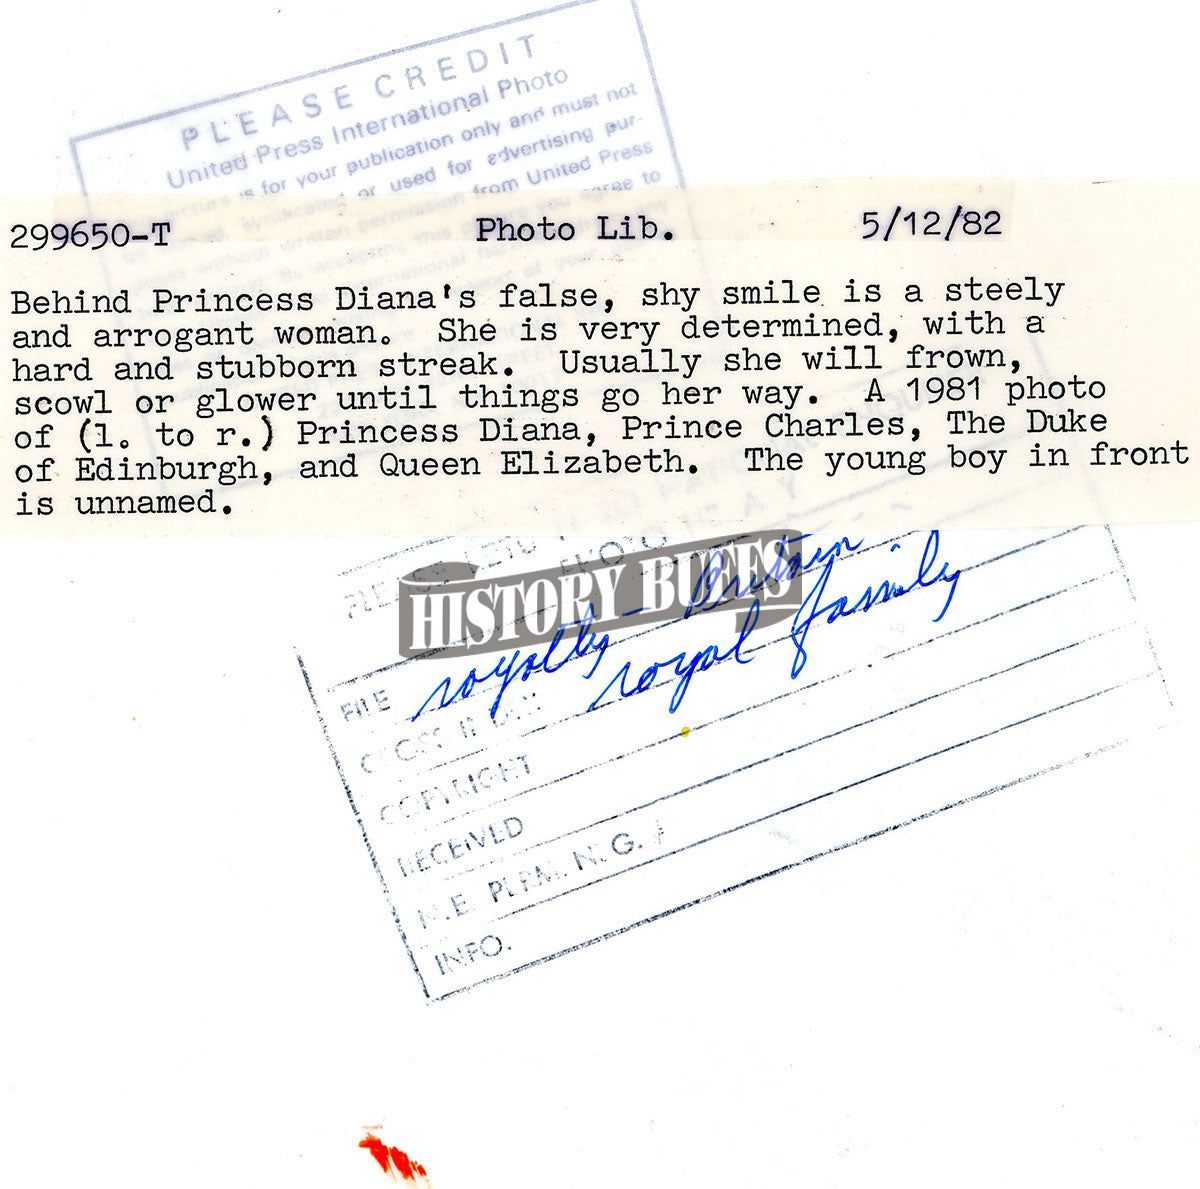 PLEASE CREDIT
United Press International Photo
is for your publication only and must not
or used for advertising pur-
from United Press
agree to
299650-T Photo Lib. 5/12/82
Behind Princess Diana's false, shy smile is a steely
and arrogant woman. She is very determined, with a
hard and stubborn streak. Usually she will frown,
scowl or glower until things go her way. A 1981 photo
of (l. to r.) Princess Diana, Prince Charles, The Duke
of Edinburgh, and Queen Elizabeth. The young boy in front
is unnamed.
HISTORY BUFFS
FILE royalty - Britain
royal family
COPYRIGHT
RECEIVED
PERM. N.G.
INFO.